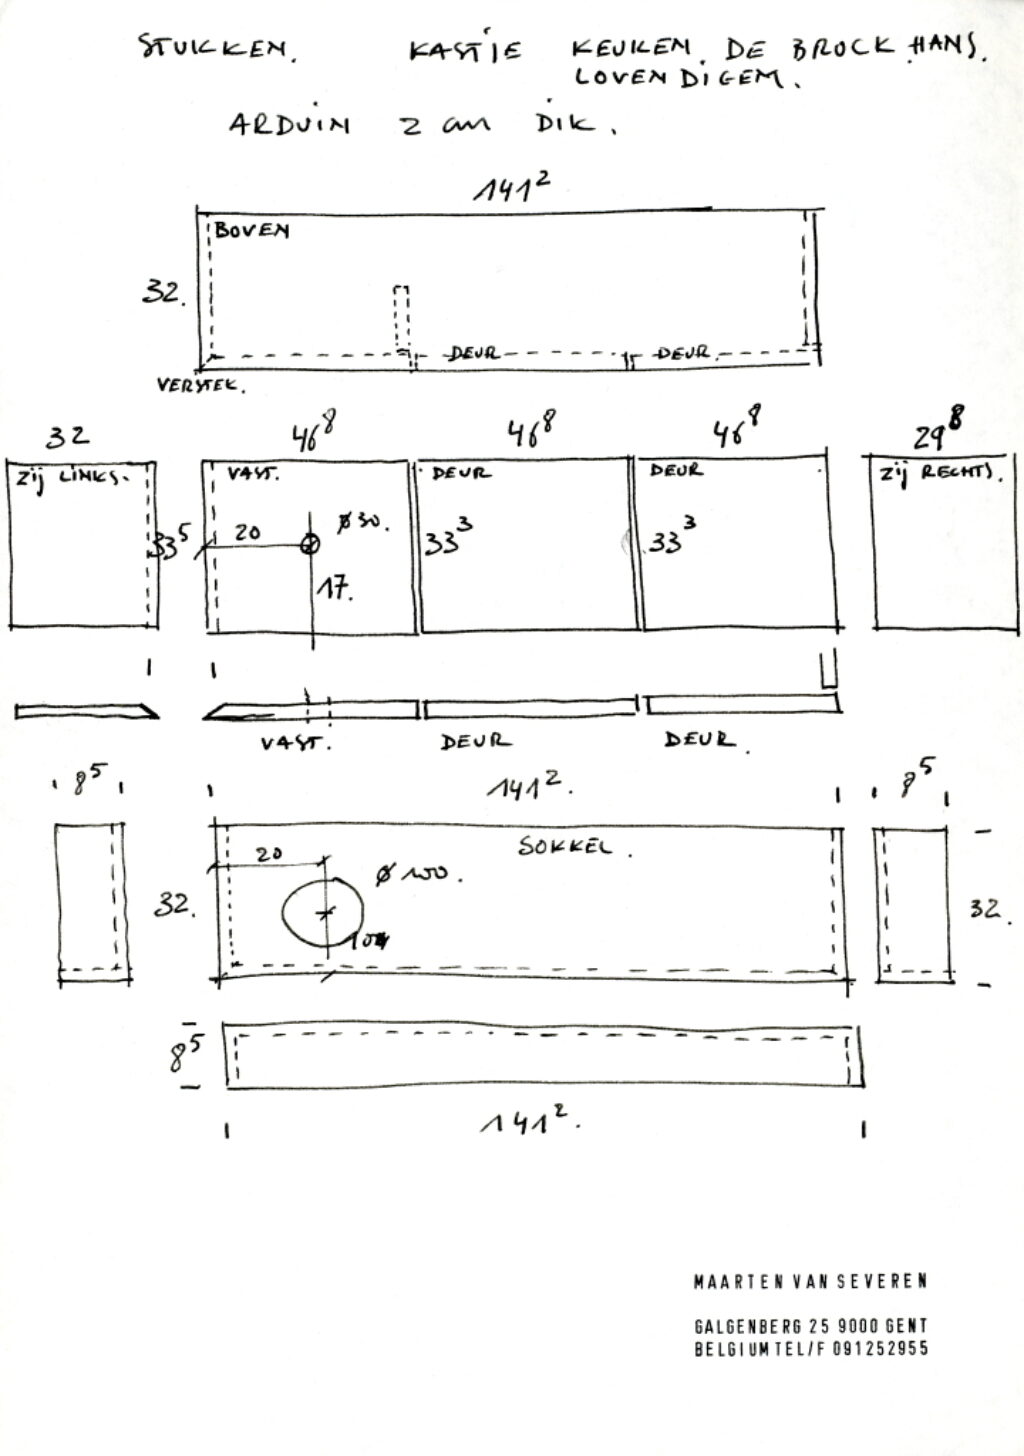 STUKKEN. KASTJE KEUKEN. DE BROCK HANS.
LOVENDIGEM.
ARDUIN 2 cm DIK.
141²
BOVEN
32.
DEUR DEUR.
VERSTEK.
32 46⁸ 46⁸ 46⁸ 29⁸
Zij LINKS. VAST. DEUR DEUR Zij RECHTS.
33⁵ 20 Ø30. 33³ 33³
17.
VAST. DEUR DEUR.
8⁵ 141². 8⁵
SOKKEL.
20
Ø 100.
32. 32.
8⁵
141².
MAARTEN VAN SEVEREN
GALGENBERG 25 9000 GENT
BELGIUM TEL/F 091252955